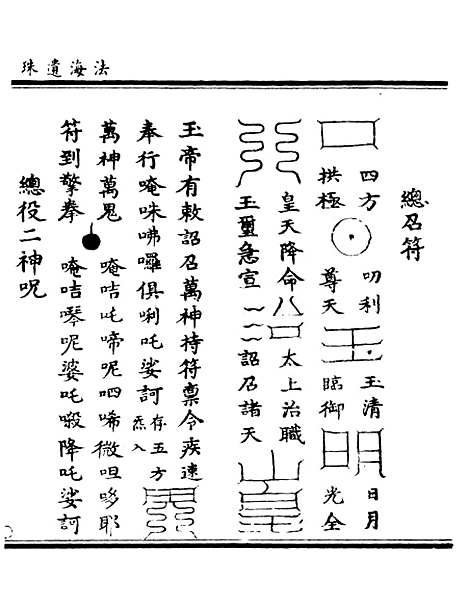 法海遺珠
總召符
四方 叨利 玉清 日月
拱極 尊天 臨御 光全
皇天降命 太上治職
玉璽急宣 詔召諸天
玉帝有敕詔召萬神持符稟令疾速
奉行唵咮咈囉俱唎吒娑訶存五方炁入
萬神萬鬼 唵吉吒啼呢呬唏微呾哆耶
符到擎拳 唵吉唥呢婆吒啜降吒娑訶
總役二神呪